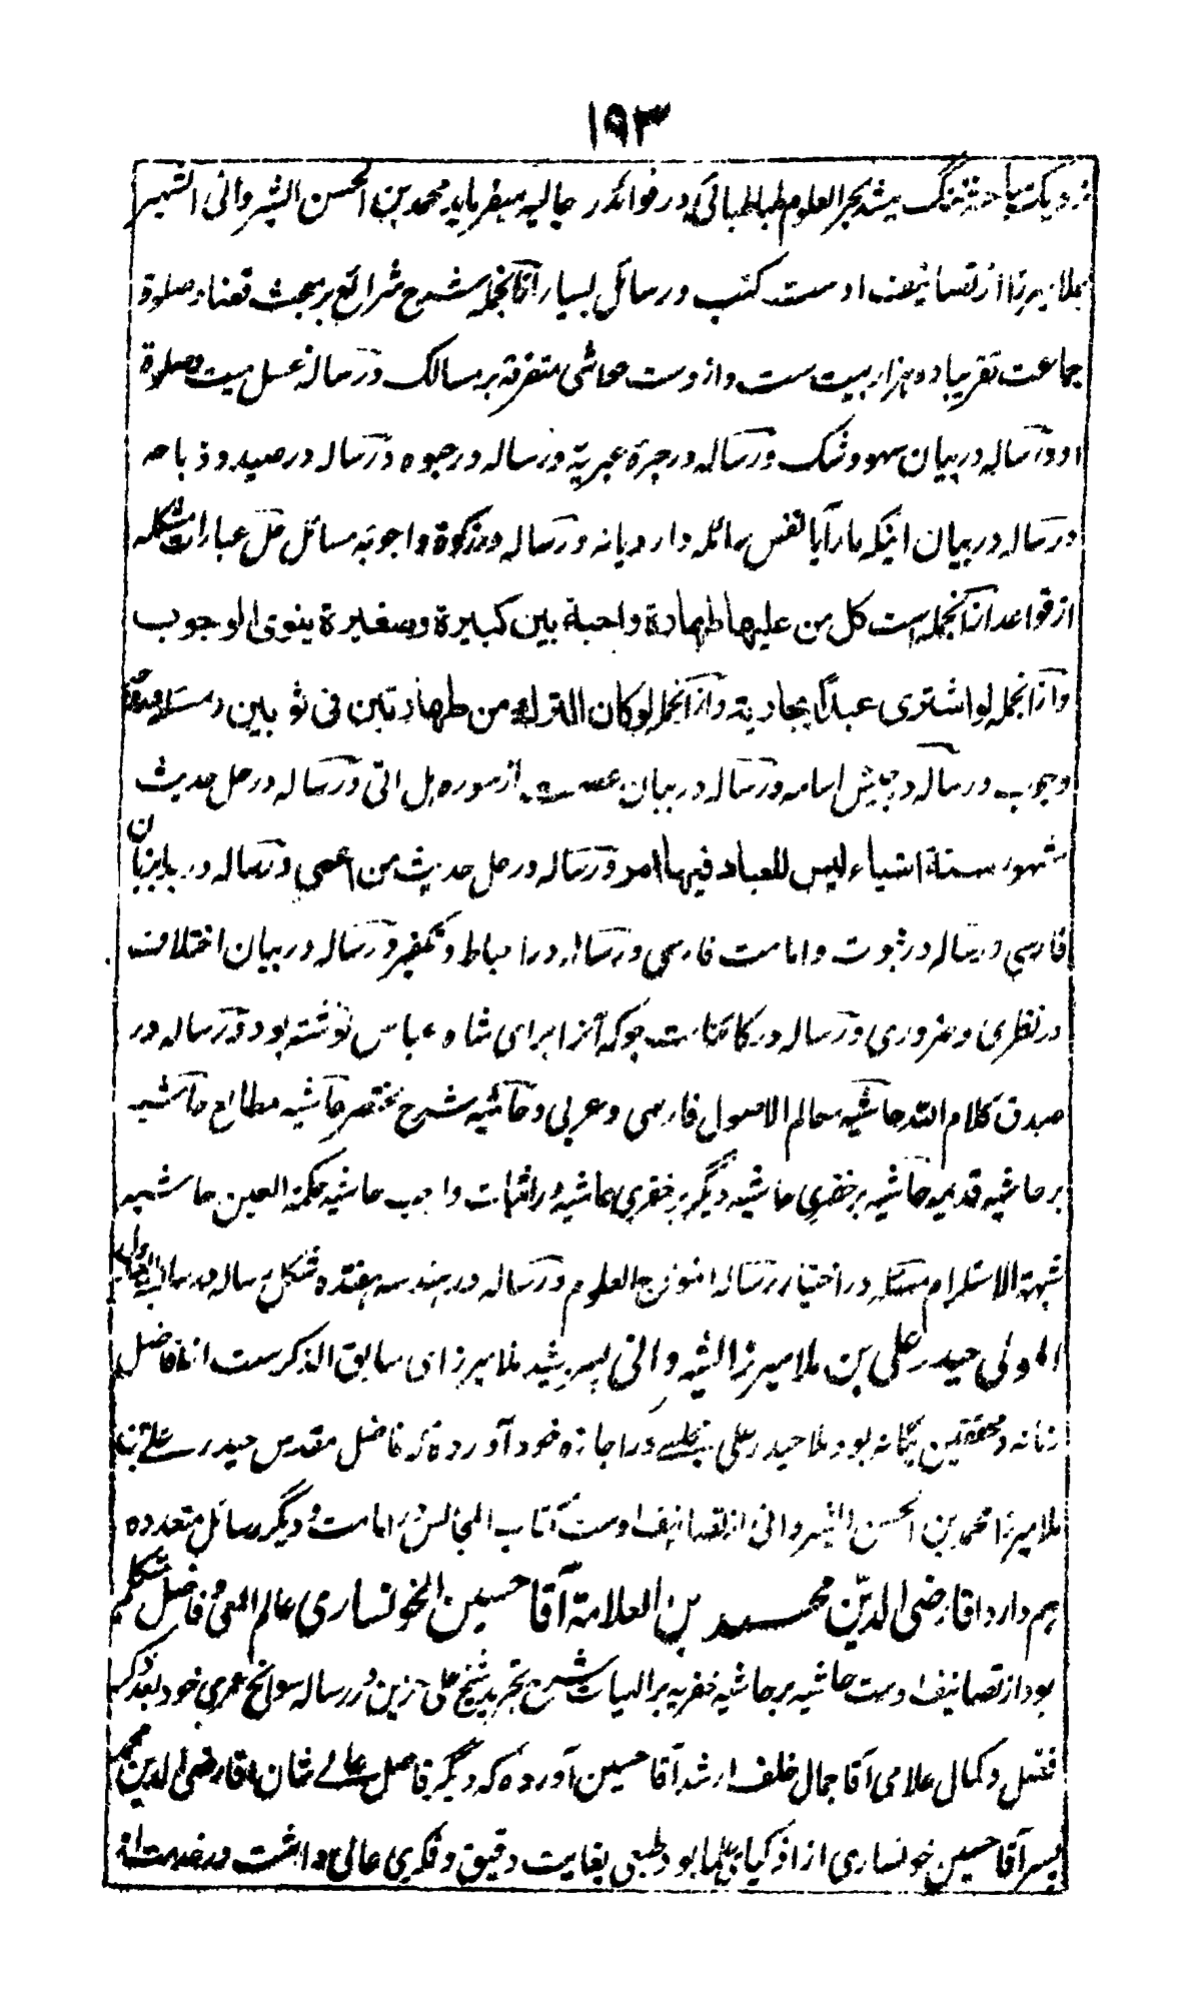 ١٩٣
نزدیک بباحثه تنگ میشد بحر العلوم طباطبائی در فوائد رجالیه میفرماید محمد بن الحسن الشیروانی الشهیر
بملا میرزا از تصانیف اوست کتب و رسائل بسیار ازآنجمله شرح شرائع بر مبحث قضا و صلوة
جماعت تقریبا دو هزار بیت ست و ازوست حواشی متفرقه بر مسالک و رساله غسل میت و صلوة
او و رساله در بیان سهو و شک و رساله در جبرۀ عبریة و رساله در حبوه و رساله در صید و ذباحه
و رساله در بیان اینکه مار آیا نفس سائله دارد یا نه و رساله در زکوة و اجوبه مسائل حل عبارات مشکله
از قواعد ازآنجمله است کل من علیها طهارة واجبة بین کبیرة و صغیرة ینوی الوجوب
و ازآنجمله لو اشتری عبدا بجاریة و ازآنجمله لو کان الترك من طهارتین فی ثوبین و مسئله مقدمه
وجوب و رساله در جیش اسامه و رساله در بیان عصمت از سوره هل اتی و رساله در حل حدیث
مشهور ستة اشیاء لیس للعباد فیها امر و رساله در حل حدیث من اعصی و رساله در بدا بزبان
فارسی و رساله در نبوت و امامت فارسی و رساله در احباط و تکفیر و رساله در بیان اختلاف
در نظری و ضروری و رساله در کائنات جو که آنرا برای شاه عباس نوشته بود و رساله در
صدق کلام الله حاشیه معالم الاصول فارسی و عربی و حاشیه شرح مختصر حاشیه مطالع حاشیه
بر حاشیه قدیمه حاشیه بر خفری حاشیه دیگر بر خفری حاشیه در اثبات واجب حاشیه حکمة العین حاشیه
شبهة الاستلزام مسئله در اختیار رساله انموذج العلوم و رساله در هندسه هفتده شکل رساله
المولی حیدر علی بن ملا میرزا الشیروانی پسر رشید ملا میرزای سابق الذکرست از افاضل
زمانه و محققین یگانه بود ملا حیدر علی مجلسی در اجازه خود آورده که فاضل مقدس حیدر علی بن
ملا میرزا محمد بن الحسن الشیروانی از تصانیف اوست کتاب المجالس در امامت و دیگر رسائل متعدده
هم دارد اقا رضی الدین محمد بن العلامة آقا حسین الخونساری عالم المعی و فاضل متکلم
بود از تصانیف اوست حاشیه بر حاشیه خفریه بر الهیات شرح تجرید شیخ علی حزین در رساله سوانح عمری خود بعد ذکر
فضل و کمال علامی آقا جمال خلف ارشد آقا حسین آورده که دیگر فاضل عالی شان اقا رضی الدین محمد
پسر آقا حسین خونساری از اذکیای علما بود طبعی بغایت دقیق و فکری عالی داشت در خدمت